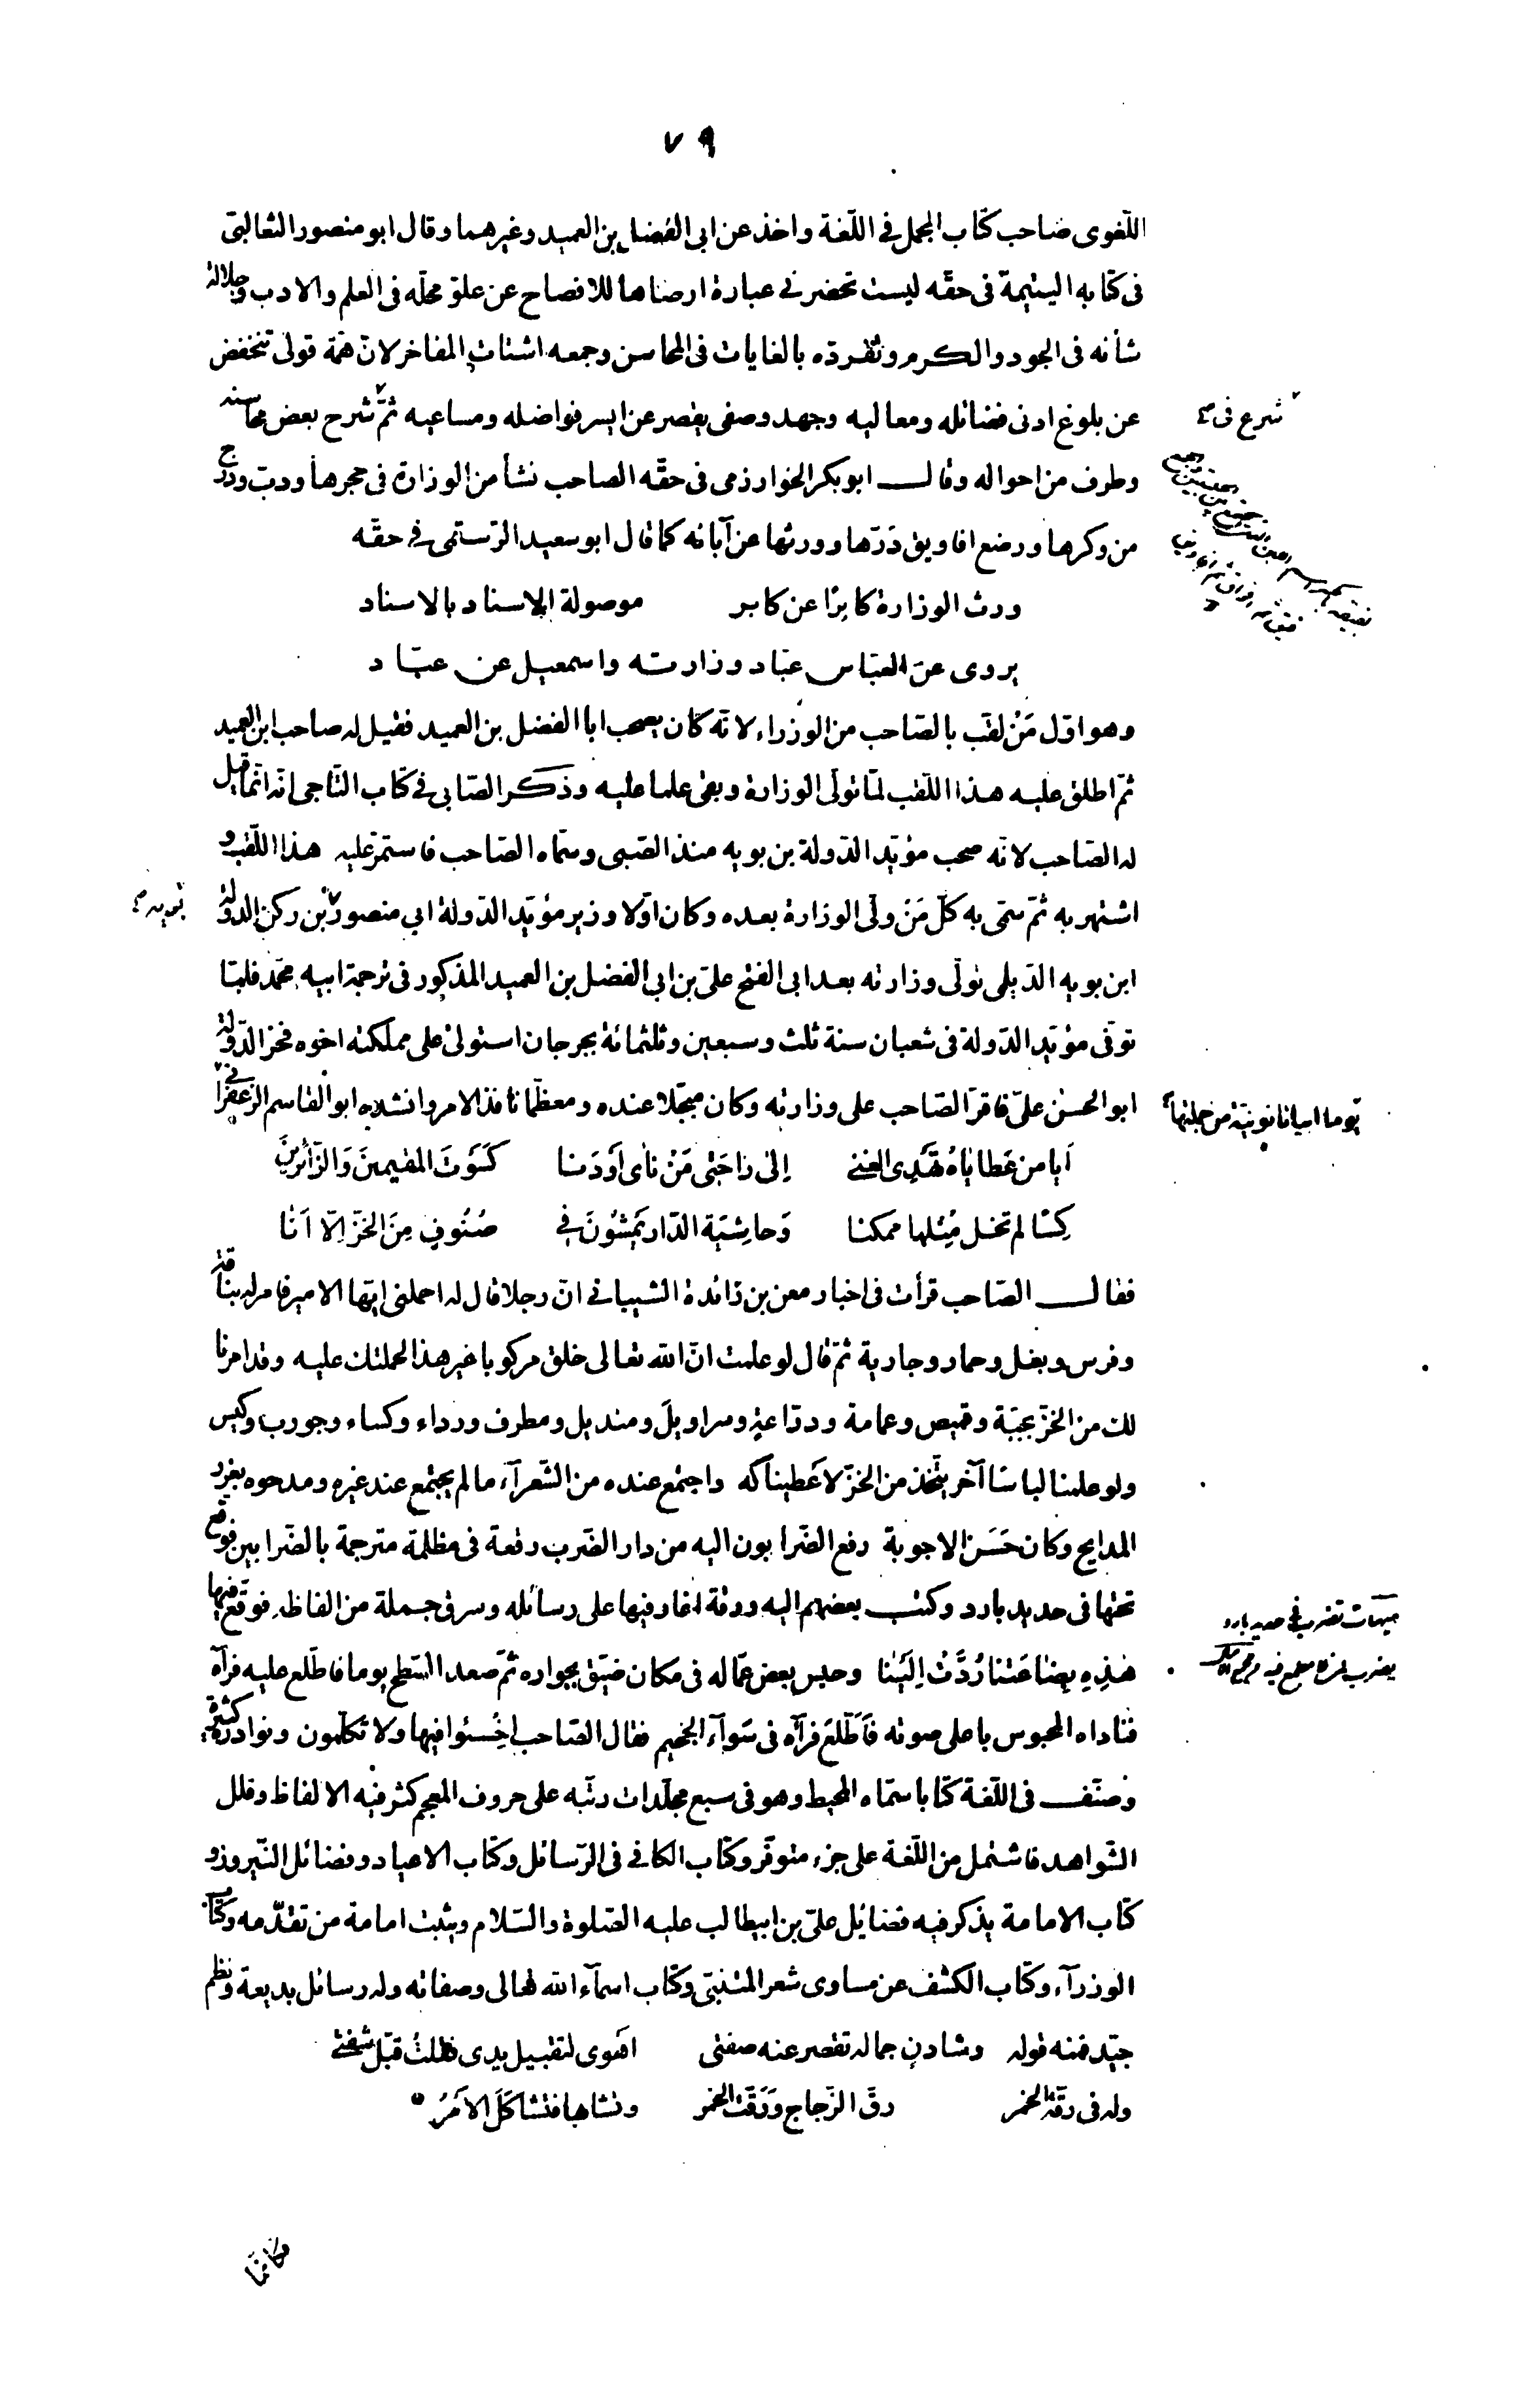 ٧٩
اللّغوى صاحب كتاب المجمل فى اللّغة واخذ عن ابى الفضل بن العميد وغيرهما وقال ابو منصور الثعالبىّ
فى كتابه اليتيمة فى حقّه ليست تحضرنى عبارة ارضاها للافصاح عن علوّ محلّه فى العلم والادب وجلالة
شأنه فى الجود والكرم وتفرّده بالغايات فى المحاسن وجمعه اشتات المفاخر لانّ همّة قولى تنخفض
عن بلوغ ادنى فضائله ومعاليه وجهد وصفى يقصر عن ايسر فواضله ومساعيه ثمّ شرح بعض محاسنه
شرع فى
وطرف من احواله وقال ابو بكر الخوارزمى فى حقّه الصاحب نشأ من الوزارة فى حجرها ودبّ ودرج
من وكرها ورضع افاويق دَرّها وورثها عن آبائه كما قال ابو سعيد الرّستمى فى حقّه
ورث الوزارة كابرًا عن كابر موصولة الاسناد بالاسناد
يروى عن العبّاس عبّاد وزارته واسمعيل عن عبّاد
وهو اوّل مَنْ لقّب بالصّاحب من الوزراء لانّه كان يصحب ابا الفضل بن العميد فقيل له صاحب ابن العميد
ثمّ اطلق عليه هذا اللّقب لمّا تولّى الوزارة وبقى علما عليه وذكر الصّابى فى كتاب التّاجى انّه انّما قيل
له الصّاحب لانّه صحب مؤيّد الدّولة بن بويه منذ الصّبى وسمّاه الصّاحب فاستمرّ عليه هذا اللّقب و
اشتهر به ثمّ سمّى به كلّ مَنْ ولّى الوزارة بعده وكان اوّلا وزير مؤيّد الدّولة ابى منصور بن ركن الدّولة
بويه
ابن بويه الدّيلمى تولّى وزارته بعد ابى الفتح علىّ بن ابى الفضل بن العميد المذكور فى ترجمة ابيه محمّد فلمّا
توفّى مؤيّد الدّولة فى شعبان سنة ثلث وسبعين وثلثمائة بجرجان استولى على مملكته اخوه فخر الدّولة
ابو الحسن علىّ فاقرّ الصّاحب على وزارته وكان مبجّلا عنده ومعظّما نافذ الامر وانشده ابو القاسم الزّعفرانى
يوما ابياتا نونيّة من جملتها
اَيا من عَطاياهُ تهْدى الغنى اِلى راحَتَى مَنْ نأى اَوْ دَنا كَسَوْتَ المقيمينَ وَالزّائرينَ
كِسًا لم تخل مِثلها ممكنا وَحاشِيَة الدّار يَمْشُونَ فى صُنُوفٍ مِنَ الخَزّ اِلّا اَنا
فقال الصّاحب قرأت فى اخبار معن بن زائدة الشّيبانى انّ رجلا قال له احملنى ايّها الامير فامر له بناقة
وفرس وبغل وحمار وجارية ثمّ قال لو علمت انّ الله تعالى خلق مركوبا غير هذا لحملتك عليه وقد امرنا
لك من الخزّ بجبّة وقميص وعمامة ودرّاعة وسراويل ومنديل ومطرف ورداء وكساء وجورب وكيس
ولو علمنا لباسًا آخر يتّخذ من الخزّ لاعطيناكه واجتمع عنده من الشّعرآء ما لم يجتمع عند غيره ومدحوه بغرر
المدايح وكان حَسَن الاجوبة رفع الضّرابون اليه من دار الضّرب رقعة فى مظلمة مترجمة بالضّرابين فوقّع
تحتها فى حديد بارد وكتب بعضهم اليه ورقة اغار فيها على رسائله وسرق جملة من الفاظه فوقّع فيها
هٰذِهِ بِضاعَتنا رُدَّتْ اِلَيْنا وحبس بعض عمّاله فى مكان ضيّق بجواره ثمّ صعد السّطح يوما فاطّلع عليه فرآه
فناداه المحبوس باعلى صوته فَاَطَّلَعَ فرآه فى سَوآء الجحيم فقال الصّاحب اخْسئوا فيها ولا تكلّمون ونوادره كثيرة
وصنّف فى اللّغة كتابا سمّاه المحيط وهو فى سبع مجلّدات رتّبه على حروف المعجم كثر فيه الالفاظ وقلل
الشّواهد فاشتمل من اللّغة على جزء متوفّر وكتاب الكافى فى الرّسائل وكتاب الاعياد وفضائل النّيروز و
كتاب الامامة يذكر فيه فضائل علىّ بن ابيطالب عليه الصّلوة والسّلام ويثبت امامة من تقدّمه وكتاب
الوزرآء وكتاب الكشف عن مساوى شعر المتنبّى وكتاب اسمآء الله تعالى وصفاته وله رسائل بديعة ونظم
جيّد فمنه قوله وشادن جماله تقصر عنه صفتى اهْوى لتقبيل يدى فقلتُ قبّل شفتى
وله فى رقّة الخمر رقّ الزّجاج وَرَقّت الخمر وتشابها فتشاكل الاَمْرُ
فكانّما